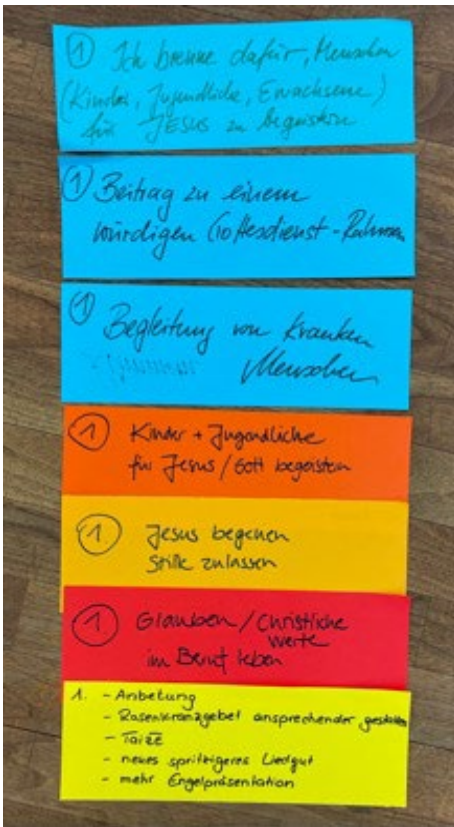 1 Ich brenne dafür, Menschen
(Kinder, Jugendliche, Erwachsene)
für JEsus zu begeistern
1 Beitrag zu einem
würdigen Gottesdienst-Rahmen
1 Begleitung von kranken
Menschen
1 Kinder + Jugendliche
für Jesus / Gott begeistern
1 Jesus begenen
Stille zulassen
1 Glauben / Christliche
Werte
im Beruf leben
1. - Anbetung
- Rosenkranzgebet ansprechender gestalten
- Taizé
- neues spritzigeres Liedgut
- mehr Engelpräsentation